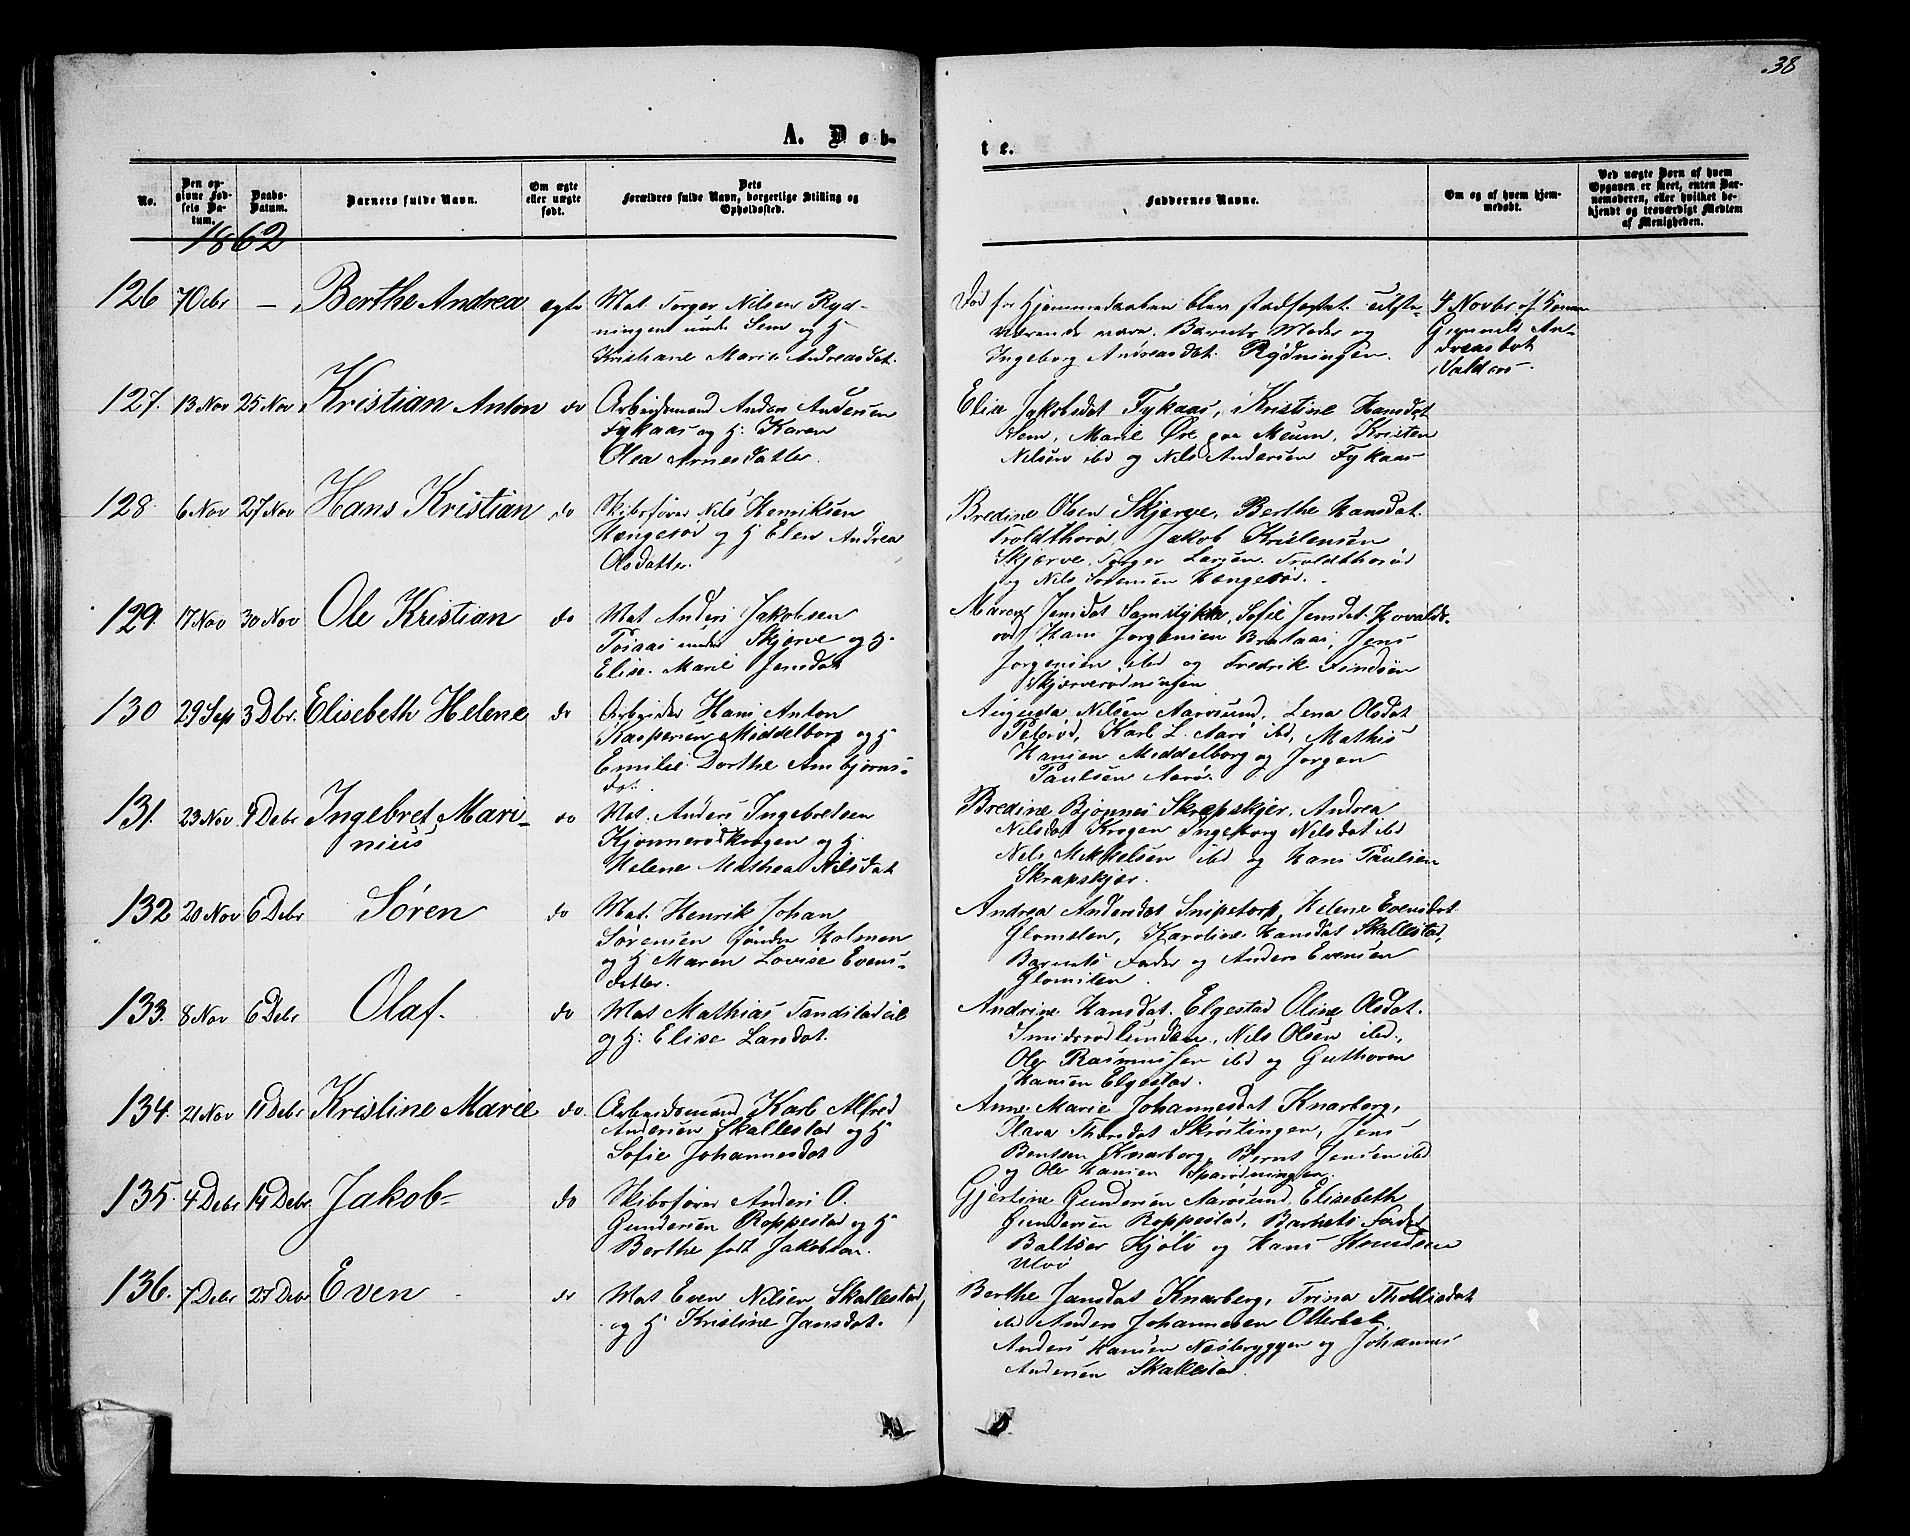 38
A. Døb-
te.
No.
Den op-
givne Fød-
sels Da-
tum.
Daabs-
Datum.
Barnets fulde Navn.
Om ægte
eller uægte
født.
Dets
Forældres fulde Navn, borgerlige Stilling og
Opholdssted.
Faddernes Navne.
Om og af hvem hjem-
medøbt.
Ved uægte Børn af hvem
Opgaven er skeet, enten Bar-
nemoderen, eller hvilket be-
kjendt og troværdigt Medlem
af Menigheden.
1862
126 7 Octbr — Berthe Andrea ægte Mat. Torger Nilsen Ryd-
ningen under Sem og H
Kristiane Marie Andreasdat.
Død før Hjemmedaaben blev stadfæstet. tilste-
værende vare. Barnets Moder og
Ingeborg Andreasdat. Rydningen.
4 Novbr af
Gunnild An-
dreasdat
Valders.
127. 13 Nov 25 Nov Kristian Anton do Arbeidsmand Anders Andersen
Fykaas og H. Karen
Olea Arnesdatter.
Elise Jakobsdat Fykaas, Kristine Hansdat
Sem, Marie Meum, Kristen
Nilsen ibd og Nils Andersen Fykaas
128. 6 Nov 27 Nov Hans Kristian do Skibsfører Nils Henriksen
Hængesør og H Elen Andrea
Olsdatter.
Bredine Olsen Skjerve, Berthe Hansdat.
Jakob Kristensen
Skjærve, Torger Larsen
og Nils Sørensen
129. 17 Nov 30 Nov Ole Kristian do Mat Anders Jakobsen
under Skjerve og H.
Elise Marie Jensdat
Maren Jensdat Sofie Jensdat
Hans Jørgensen Brataas, Jens
Jørgensen ibd og Fredrik
130 29 Sep 3 Dbr. Elisebeth Helene do Arbeider Hans Anton
Kaspersen Middelborg og H
Emilie Dorthe Ambjørns-
dat.
Augusta Nilsen Aarøsund, Lena Olsdat
Karl L. Aarø ibd, Mathis
Hansen Middelborg og Jørgen
Paulsen Aarø.
131. 23 Nov 4 Debr Ingebret Mari-
nius
do Mat. Anders Ingebretsen
Kjønnerødkrogen og H.
Helene Mathea Nilsdat
Bredine Bjønnes Skrapskjer, Andrea
Nilsdat Krogen Ingeborg Nilsdat ibd
Nils Mikkelsen ibd og Hans Paulsen
Skrapskjer.
132 20 Nov 6 Debr Søren do Mat. Henrik Johan
Sørensen Søndre Holmen
og H Maren Lovise Evens-
datter.
Andrea Andersdat Snipetorp, Helene Evensdat
Glomsten, Karoline Hansdat Skallestad,
Barnets Fader og Anders Evensen
Glomsten
133. 8 Nov 6 Debr Olaf. do Mat Mathias
og H: Elise Larsdat.
Andrine Hansdat. Elgestad Oline Olsdat.
Smidsrødlunden, Nils Olsen ibd,
Ole Rasmussen ibd og Guthorm
Hansen Elgestad.
134. 21 Nov 11 Debr Kristine Marie do. Arbeidsmand Karl Alfred
Andersen Skallestad og H
Sofie Johannesdat
Anne Marie Johannesdat Knarberg,
Jens
Bentsen Knarberg, Bernt Jensen ibd
og Ole Hansen
135. 4 Debr 14 Debr Jakob do Skibsfører Anders O.
Gundersen Roppestad og H
Berthe født Jakobsen.
Gjertine Gundersen Aarøsund, Elisebeth
Gundersen Roppestad, Barnets Fader
Baltser Kjølø og Hans Knudsen
Ulvø
136. 7 Debr 27 Debr Even do Mat Even Nilsen Skallestad,
og H Kristine Jansdat.
Berthe Jansdat Knarberg, Trina
ibd Anders Johannesen Otterbæk
Anders Hansen Næsbryggen og Johannes
Andersen Skallestad.